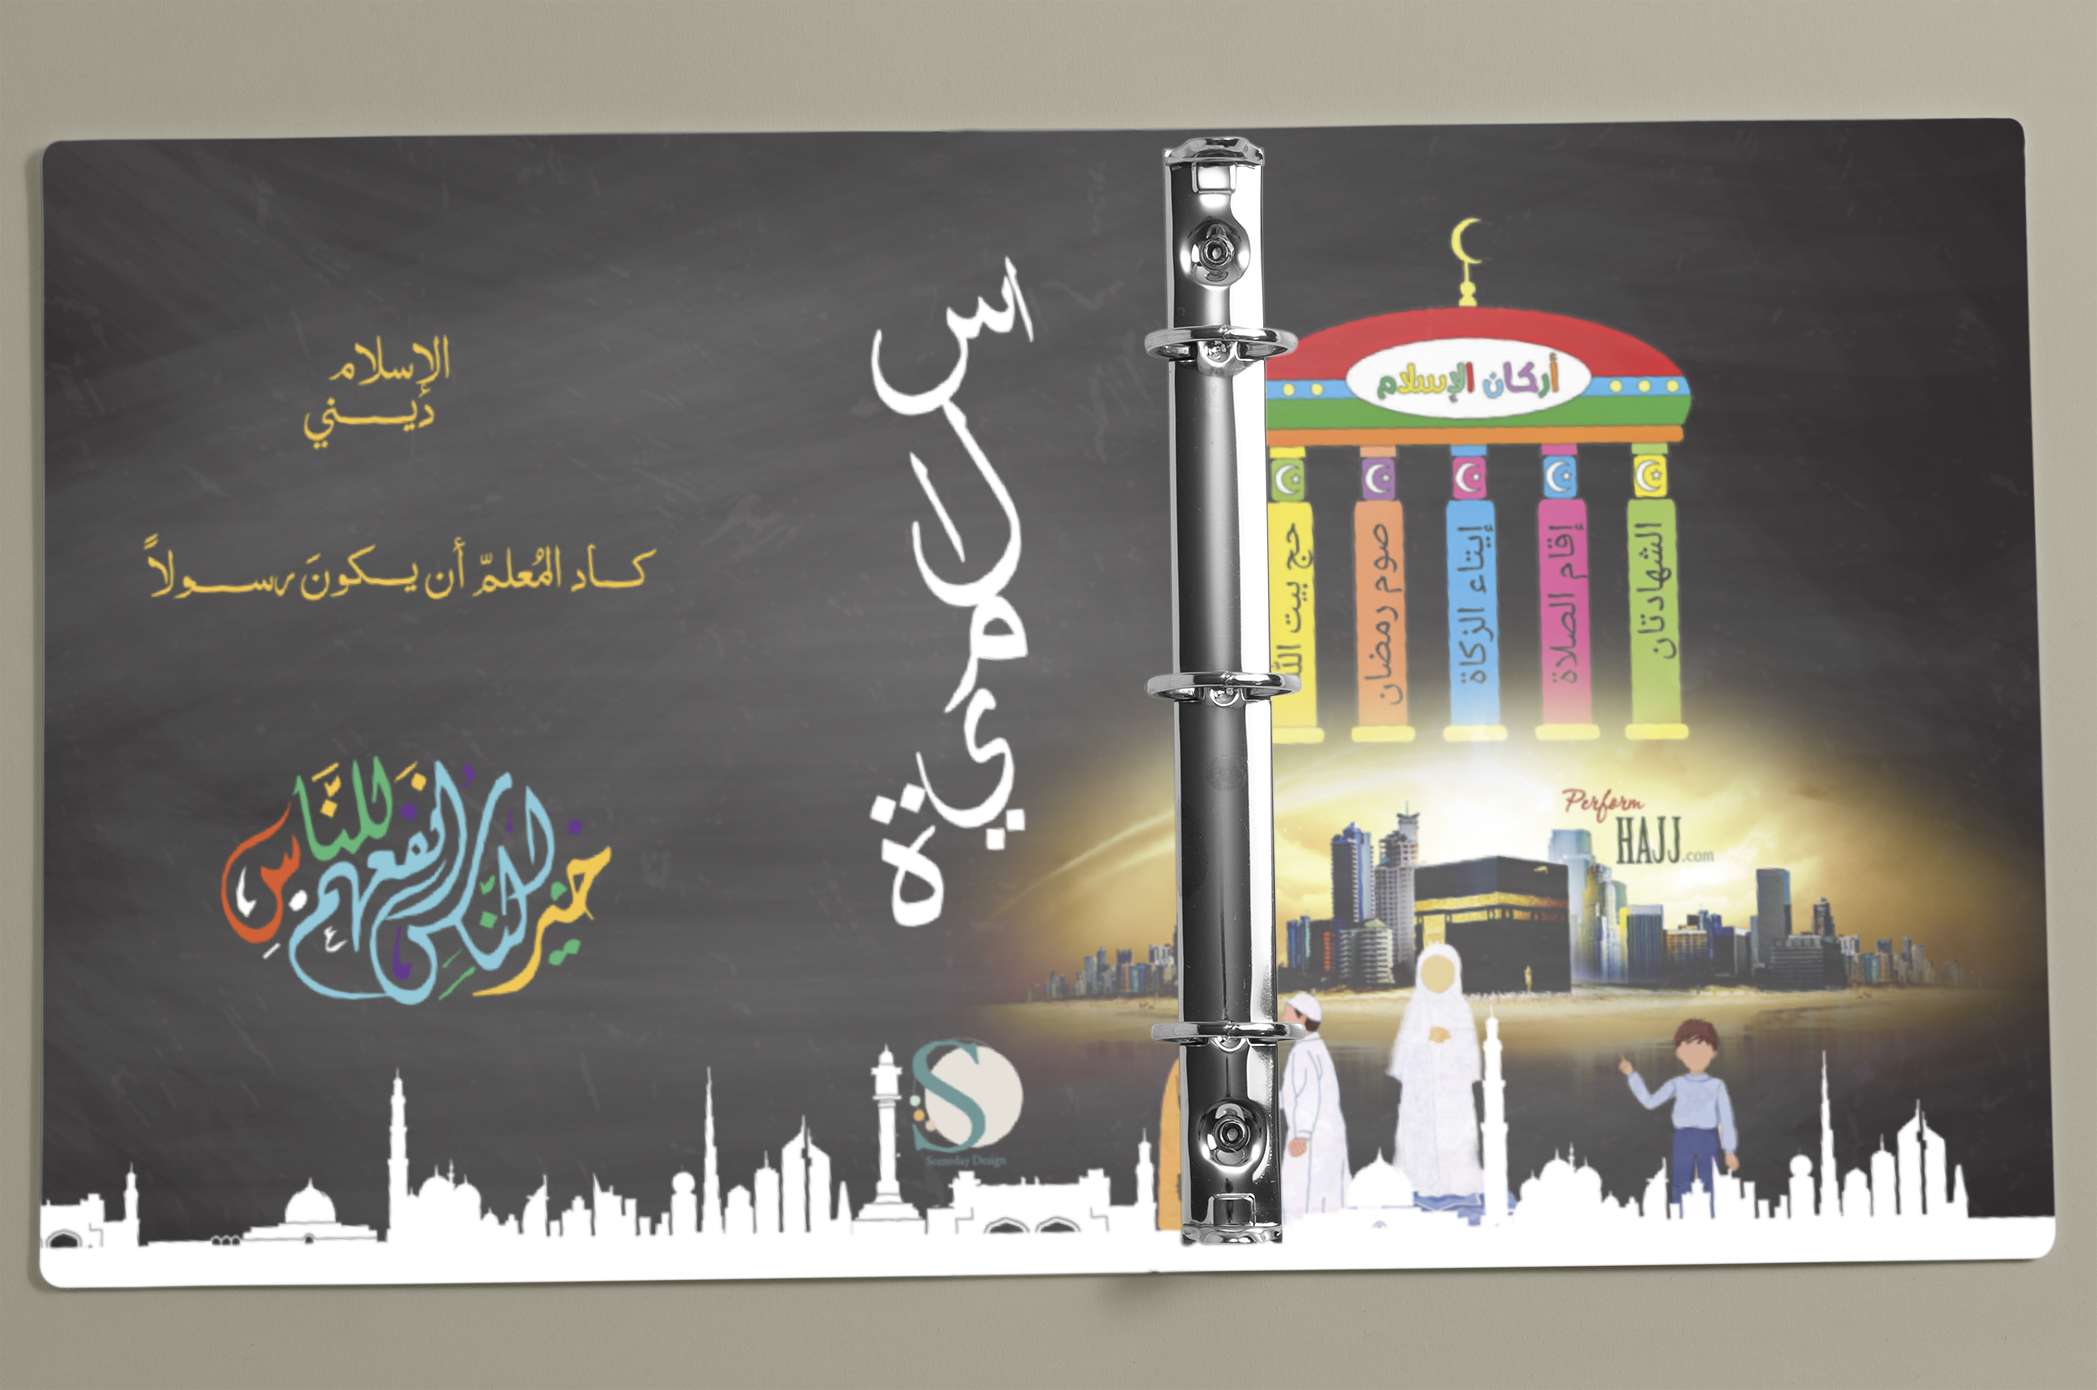 الإسلام
ديني
كاد المُعلمّ أن يكونَ رسولاً
خير الناس أنفعهم للنَّاسِ
اسلامية
أركان الإسلام
الشهادتان
إقام الصلاة
إيتاء الزكاة
صوم رمضان
حج بيت الله
Perform
HAJJ.com
S
Design